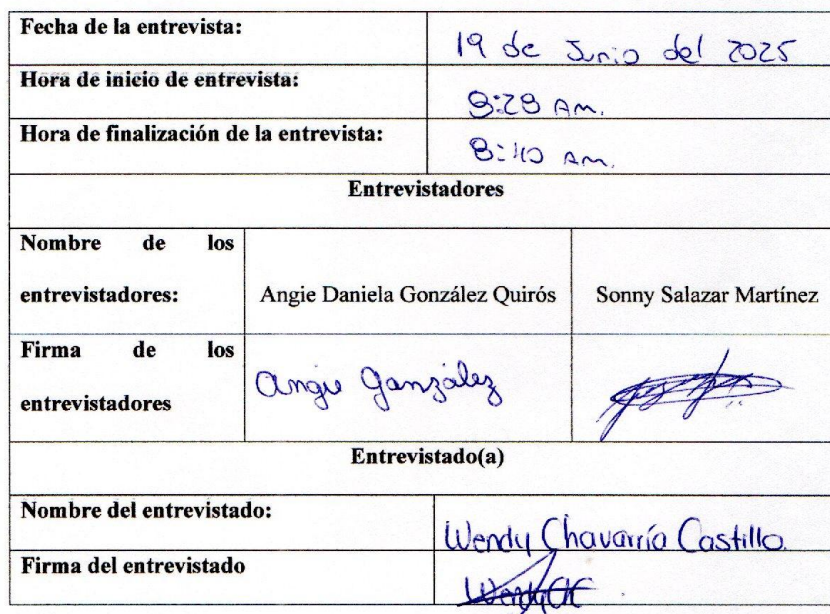 Fecha de la entrevista:
19 de Junio del 2025
Hora de inicio de entrevista:
8:28 Am.
Hora de finalización de la entrevista:
8:40 Am.
Entrevistadores
Nombre de los
entrevistadores:
Angie Daniela González Quirós
Sonny Salazar Martínez
Firma de los
entrevistadores
Angie González
Entrevistado(a)
Nombre del entrevistado:
Wendy Chavarría Castillo.
Firma del entrevistado
WendyChC